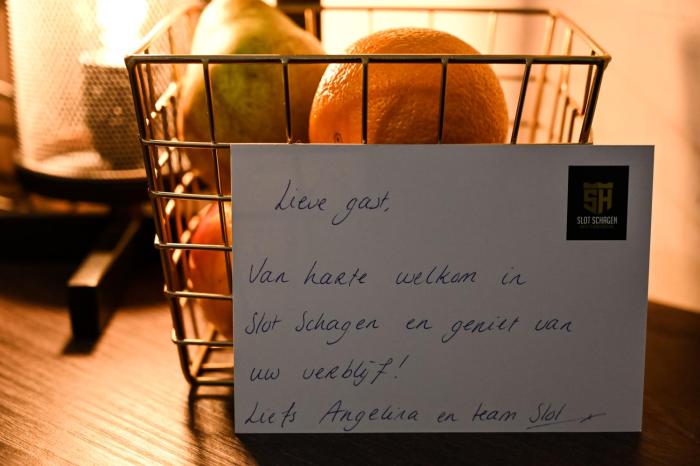 SH
SLOT SCHAGEN
Lieve gast,
Van harte welkom in
Slot Schagen en geniet van
uw verblijf!
Liefs Angelina en team Slot